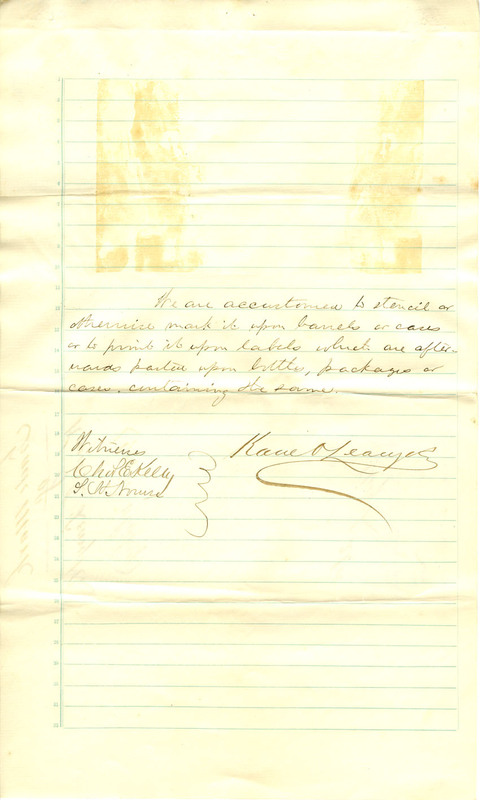 We are accustomed to stencil or
otherwise mark it upon barrels or cases
or to print it upon labels which are after-
wards pasted upon bottles, packages or
cases, containing the same.
Witnesses
Kane O'Leary & Co
Chas E Kelly
S. H. Nourse